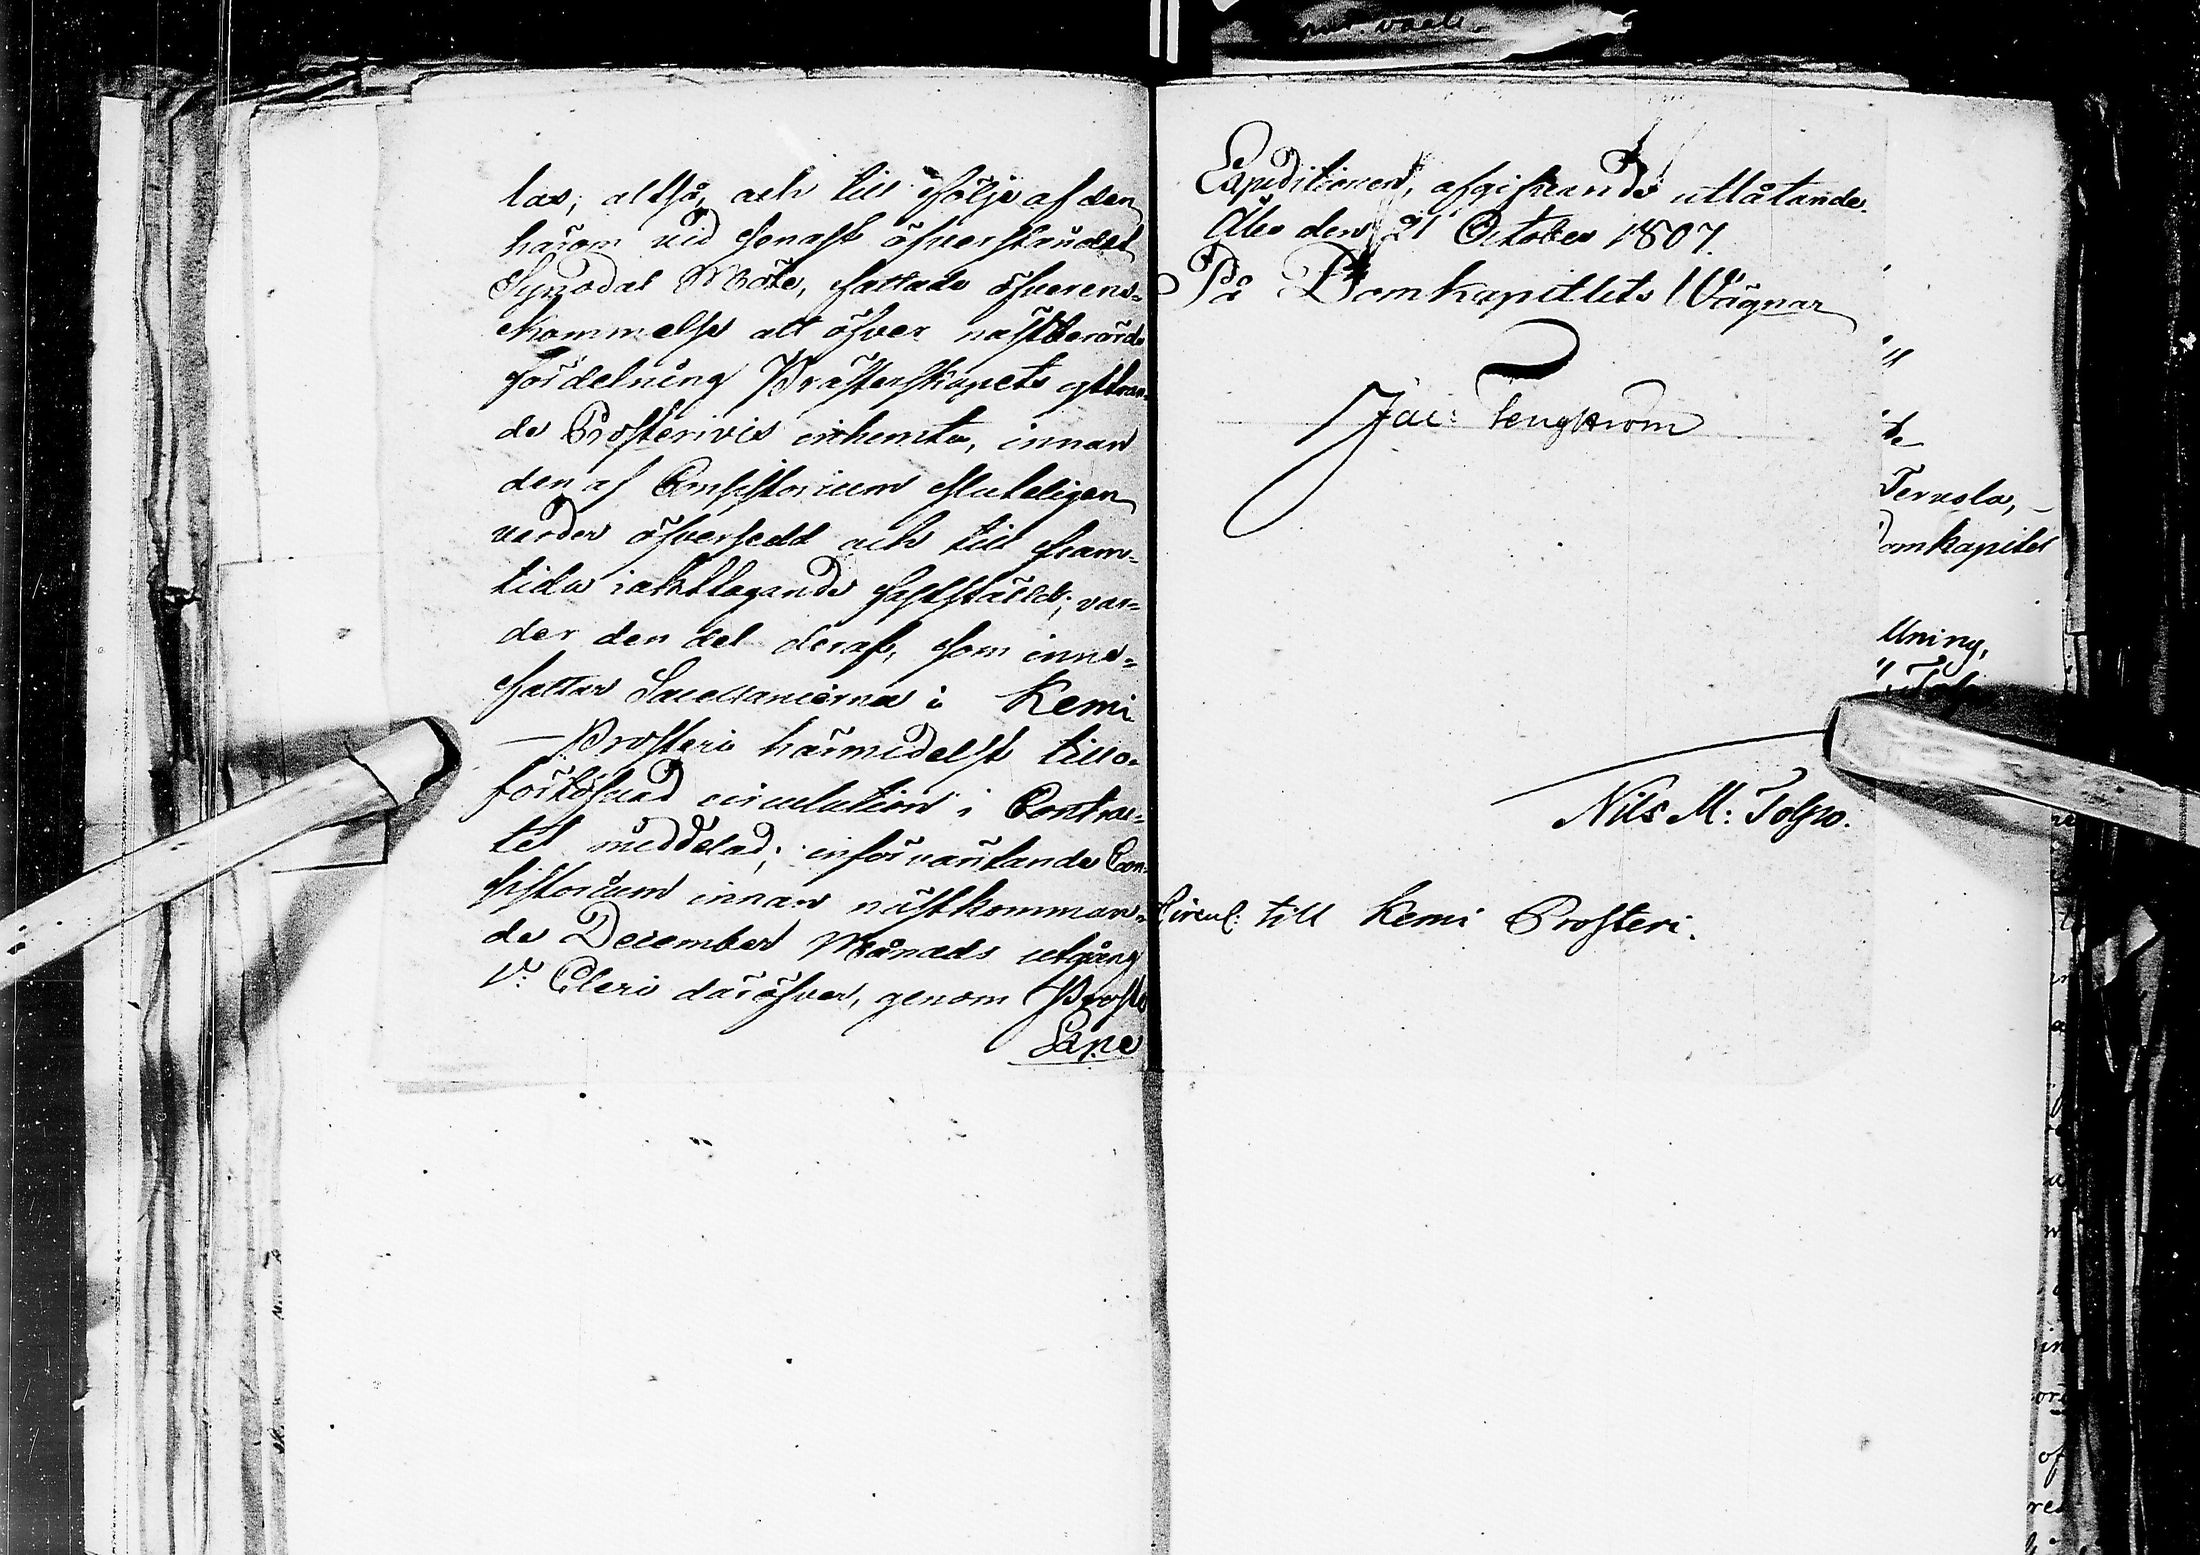 las; altså, och till följe af den
härom vid senast öfverståndet
Synodal Möte, fattade öfverens-
kommelse att öfver nästberörde
fördelning Prästerskapets yttran-
de Prosterivis inhemta, innan
den af Consistorium sluteligen
varder öfversedd och till fram-
tida iakttagande fastställd; var-
der den del deraf, som inne-
fattar Sacellanierna i Kemi
Prosteri härmedelst till o-
fördröjd circulation i Contrac-
tet meddelad; införväntande Con-
sistorium innan nästkomman-
de December Månads utgång
V: Cleri däröfver, genom Prosts
Expeditionen, afgifvande utlåtande.
Åbo den 21 October 1807.
På Domkapitlets Vägnar
Jac: Tengström
Nils M: Tolpo.
Circul: till Kemi Prosteri.
Tervola,
omkapitel